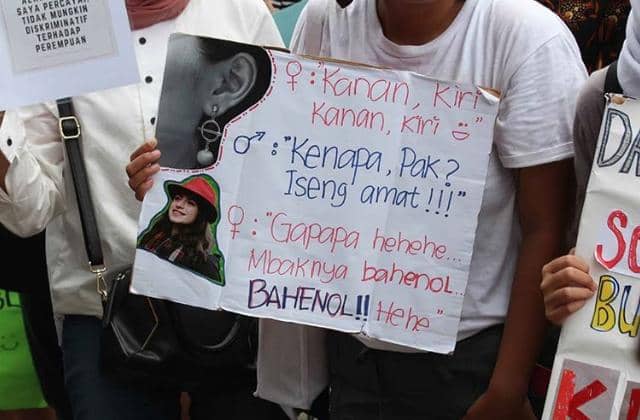 SAYA PERCAYA
TIDAK MUNGKIN
DISKRIMINATIF
TERHADAP
PEREMPUAN
♀: "Kanan, Kiri
Kanan, Kiri"
♂: "Kenapa, Pak?
Iseng amat!!!"
♀: "Gapapa hehehe...
Mbaknya bahenol..
BAHENOL!! Hehe"